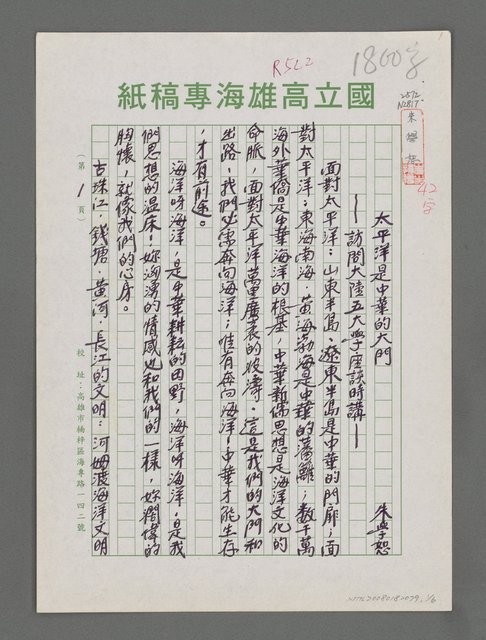 R522
1800字
國立高雄海專稿紙
朱學恕
42字
太平洋是中華的大門
——訪問大陸五大學座談時講——
朱學恕
面對太平洋:山東半島、遼東半島是中華的門扉,面
對太平洋:東海南海、黃海渤海是中華的藩籬;數千萬
海外華僑是中華海洋的根基,中華新儒思想是海洋文化的
命脈,面對太平洋萬里廣袤的波濤,這是我們的大門和
出路,我們必需奔向海洋;唯有奔向海洋,中華才能生存
,才有前途。
海洋呀海洋,是中華耕耘的田野,海洋呀海洋,是我
們思想的溫床!妳洶湧的情感也和我們的一樣,妳濶偉的
胸懷,就像我們的心房。
古珠江,錢塘、黃河、長江的文明:河姆渡海洋文明
(第1頁)
校址:高雄市楠梓區海專路一四二號
NMTL20080182079,1/6